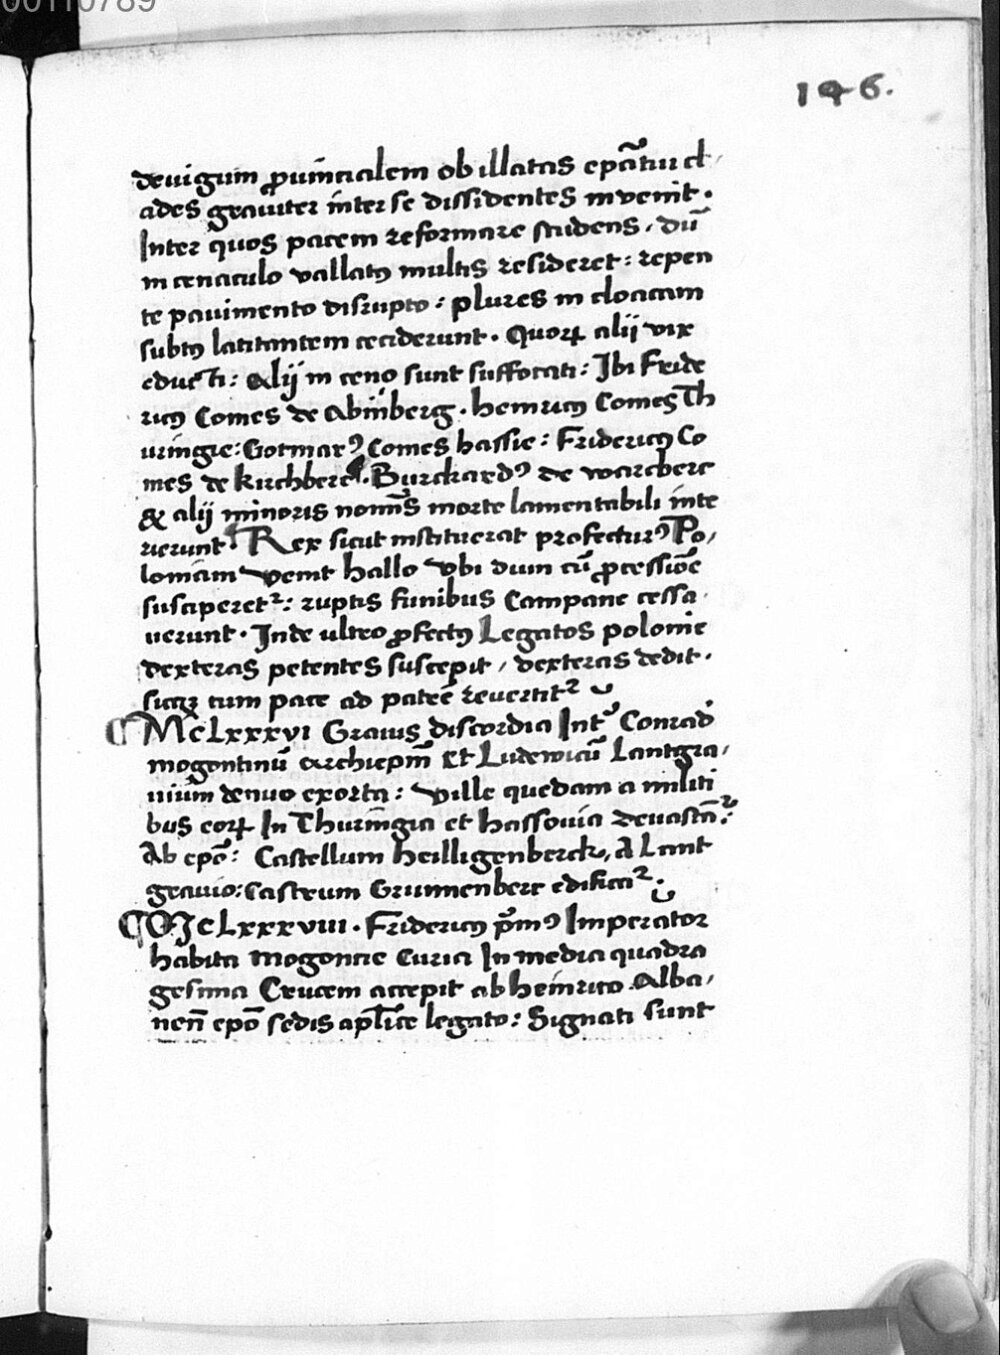 00110789
146.
deuigum ꝓuincialem ob illatas epãtui cl
ades grauiter inter se dissidentes invenit.
Inter quos pacem reformare studens, dũ
in cenaculo vallatꝰ multis resideret: repen
te pauimento disrupto: plures in cloacam
subtꝰ latitantem ceciderunt. Quoꝝ alij vix
educti: alij in ceno sunt suffocati: Ibi Fride
ricꝰ Comes de Abinberg. henricꝰ Comes Th
uringie: Gotmarꝰ Comes hassie: Fridericꝰ Co
mes de kirchberc. Burckardꝰ de warcberc
& alij minoris nomīs morte lamentabili inte
rierunt. Rex sicut instituerat profecturꝰ Po,
loniam venit hallo vbi dum cũ ꝓcessiõe
susciperetᷣ: ruptis funibus Campane cessa
uerunt. Inde ultro ꝓfectꝰ Legatos polonie
dexteras petentes suscepit, dexteras dedit.
sicqꝫ cum pace ad patrē revertitᷣ
¶ MCLXXXVI Grauis discordia Intᷣ Conrad
mogontinũ archiepm̃ et Ludewicũ Lantgra,
uium denuo exorta: ville quedam a militi
bus eoꝝ In Thuringia et hassouia deuastãᷣ:
Ab epõ: Castellum heilligenberck, A Lant
grauio: Castrum Grunnenberc edificaᷣ.
¶ MCLXXXVIII. Fridericꝰ pͥmꝰ Imperator
habita mogoncie Curia In media quadra
gesima Crucem accepit ab heinrico Alba,
nen̄ epõ sedis apl̃ice legato: Signati sunt